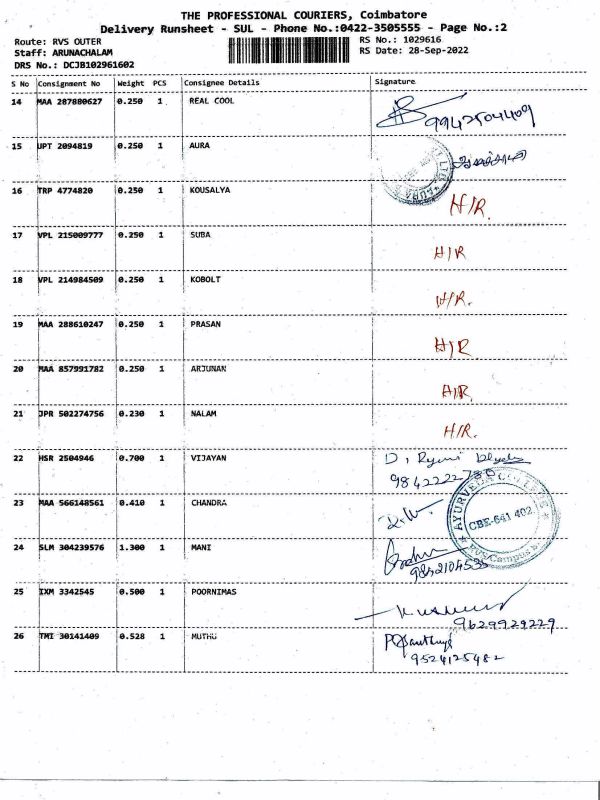 THE PROFESSIONAL COURIERS, Coimbatore
Delivery Runsheet - SUL - Phone No.:0422-3505555 - Page No.:2
Route: RVS OUTER RS No.: 1029616
Staff: ARUNACHALAM RS Date: 28-Sep-2022
DRS No.: DCJB102961602
S No Consignment No Weight PCS Consignee Details Signature
14 MAA 287880627 0.250 1 REAL COOL
9942504409
15 UPT 2094819 0.250 1 AURA
16 TRP 4774820 0.250 1 KOUSALYA H/R.
17 VPL 215009777 0.250 1 SUBA H/R
18 VPL 214984509 0.250 1 KOBOLT H/R.
19 MAA 288610247 0.250 1 PRASAN H/R.
20 MAA 857991782 0.250 1 ARJUNAN H/R.
21 JPR 502274756 0.230 1 NALAM H/R.
22 HSR 2504946 0.700 1 VIJAYAN
9842222730
23 MAA 566148561 0.410 1 CHANDRA
AYURVEDA COLLEGE
CBE-641 402
RVS Campus
24 SLM 304239576 1.300 1 MANI
25 IXM 3342545 0.500 1 POORNIMAS
9629929229
26 TMI 30141409 0.528 1 MUTHU
9524125482